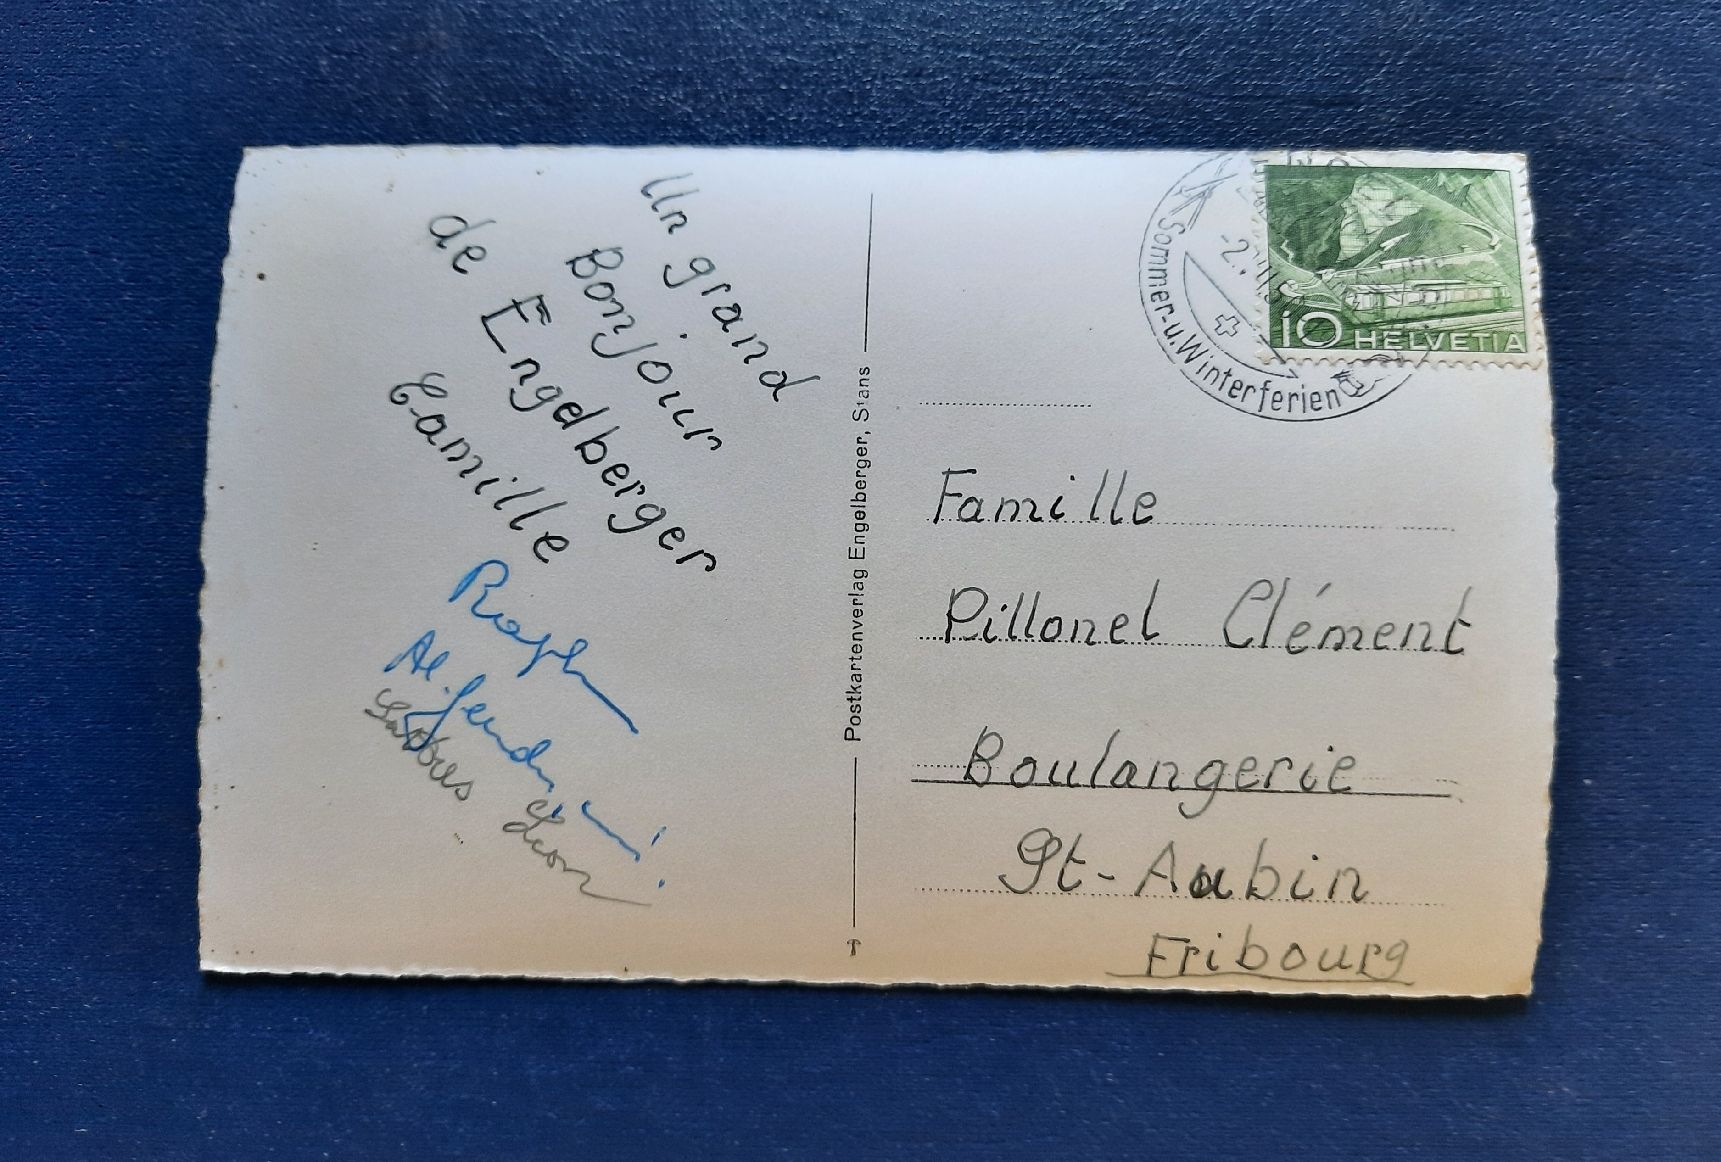 Un grand
Bonjour
de Engelberger
Camille
Léon
Postkartenverlag Engelberger, Stans
Sommer- u. Winterferien
10 HELVETIA
Famille
Pillonel Clément
Boulangerie
St-Aubin
Fribourg